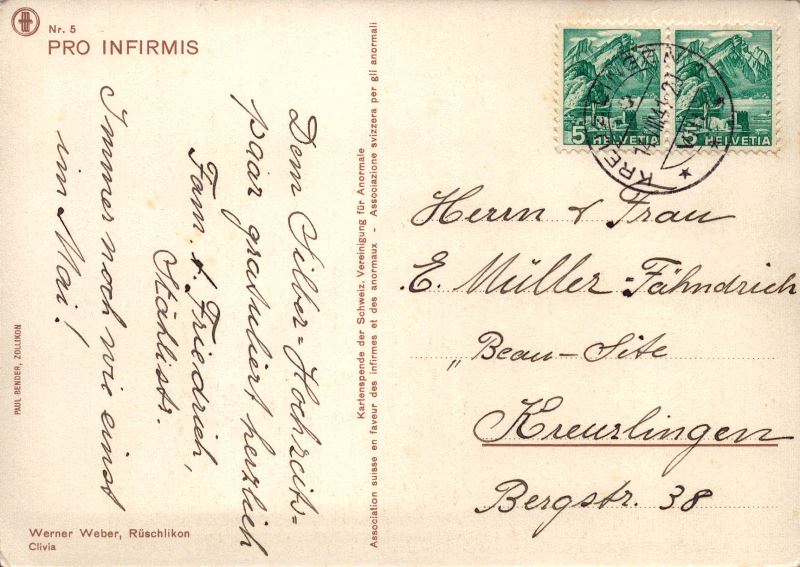 Nr. 5
PRO INFIRMIS
Dem Silber=Hochzeits=
paar gratuliert herzlich
Fam. A. Friedrich,
Stählistr.
Immer noch wie einst
im Mai!
Kartenspende der Schweiz. Vereinigung für Anormale
Association suisse en faveur des infirmes et des anormaux - Associazione svizzera per gli anormali
PAUL BENDER, ZOLLIKON
Werner Weber, Rüschlikon
Clivia
5 HELVETIA
5 HELVETIA
KREUZLINGEN 1
Herrn & Frau
E. Müller-Fähndrich
„Beau-Site
Kreuzlingen
Bergstr. 38